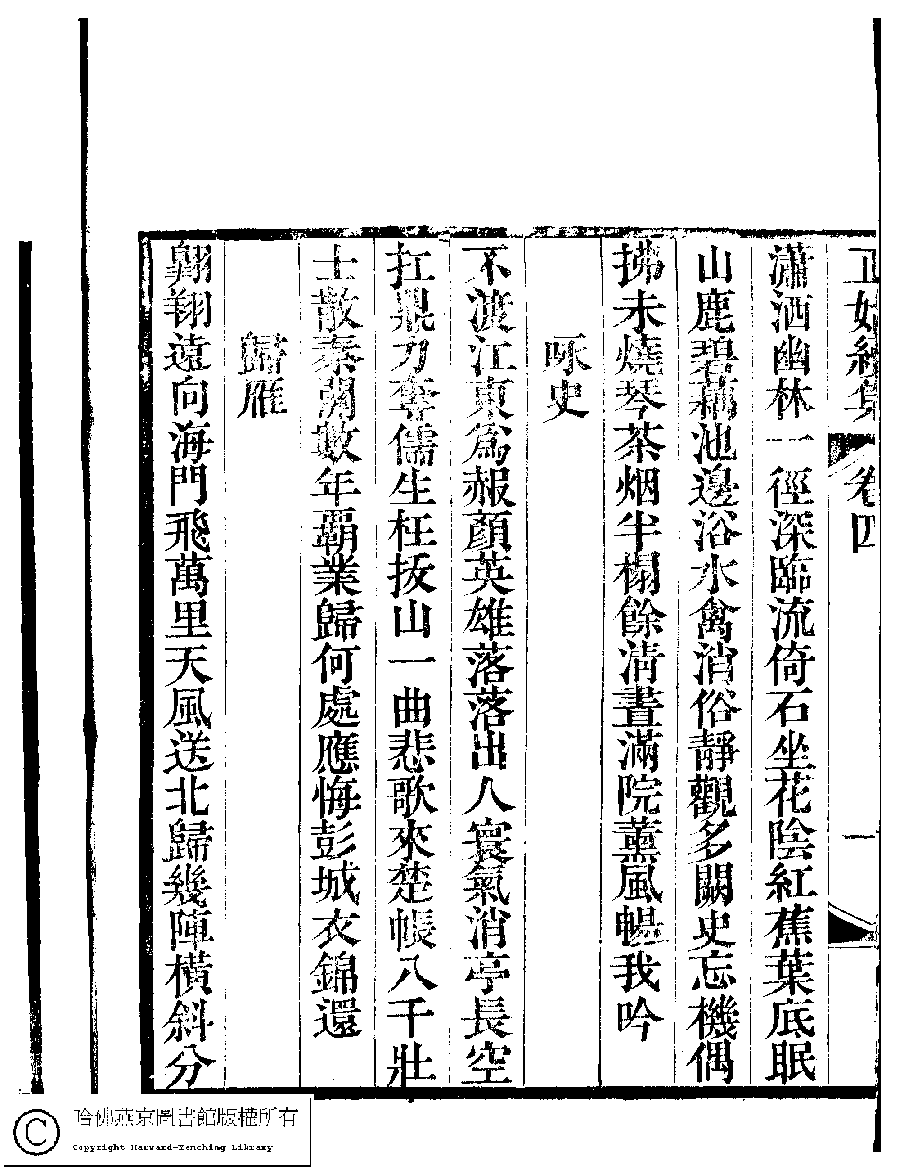 正始續集 卷四 一
瀟洒幽林一徑深臨流倚石坐花陰紅蕉葉底眠
山鹿碧藕池邊浴水禽消俗靜觀多闕史忘機偶
拂未燒琴茶烟半榻餘清晝滿院薰風暢我吟
咏史
不渡江東爲赧顏英雄落落出人寰氣消亭長空
扛鼎力奪儒生枉拔山一曲悲歌來楚帳八千壯
士散秦關數年覇業歸何處應悔彭城衣錦還
歸雁
翺翔遠向海門飛萬里天風送北歸幾陣橫斜分
哈佛燕京圖書館版權所有
Copyright Harvard-Yenching Library